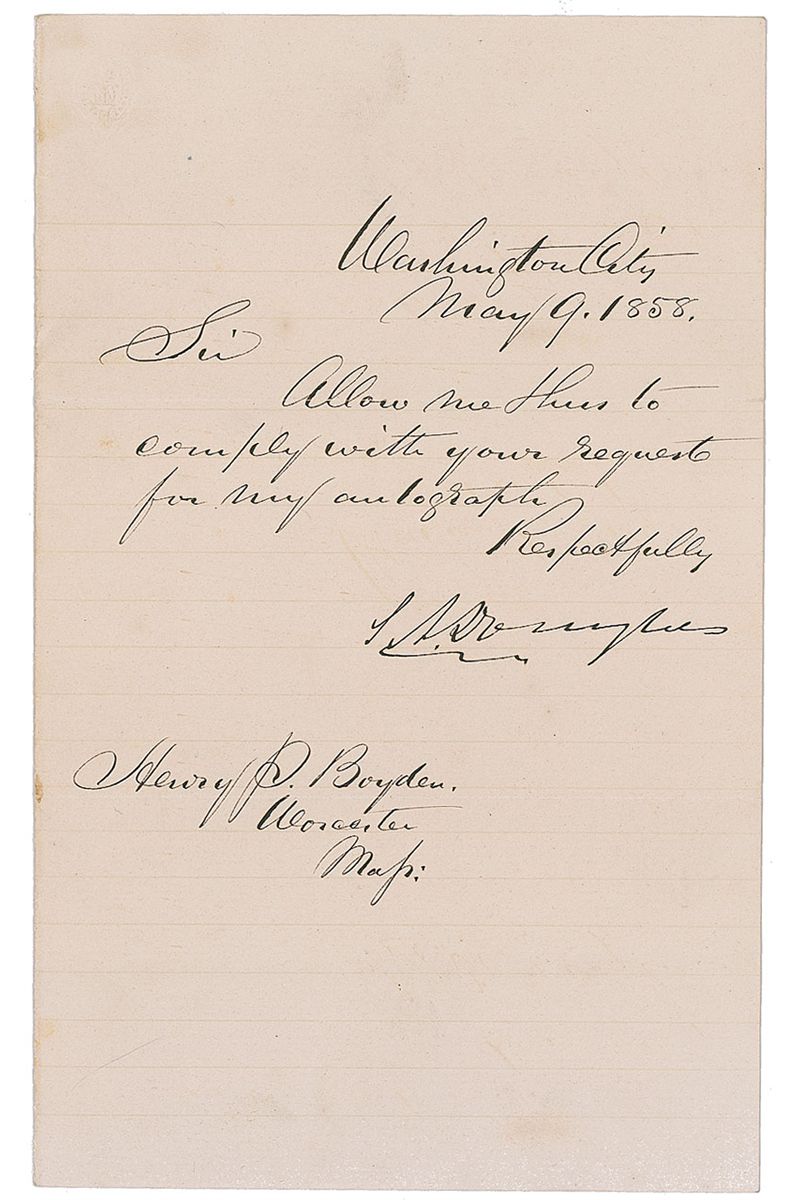 Washington City
May 9. 1858.
Sir
Allow me thus to
comply with your request
for my autograph
Respectfully
S. A. Douglas
Henry P. Boyden.
Worcester
Mass: